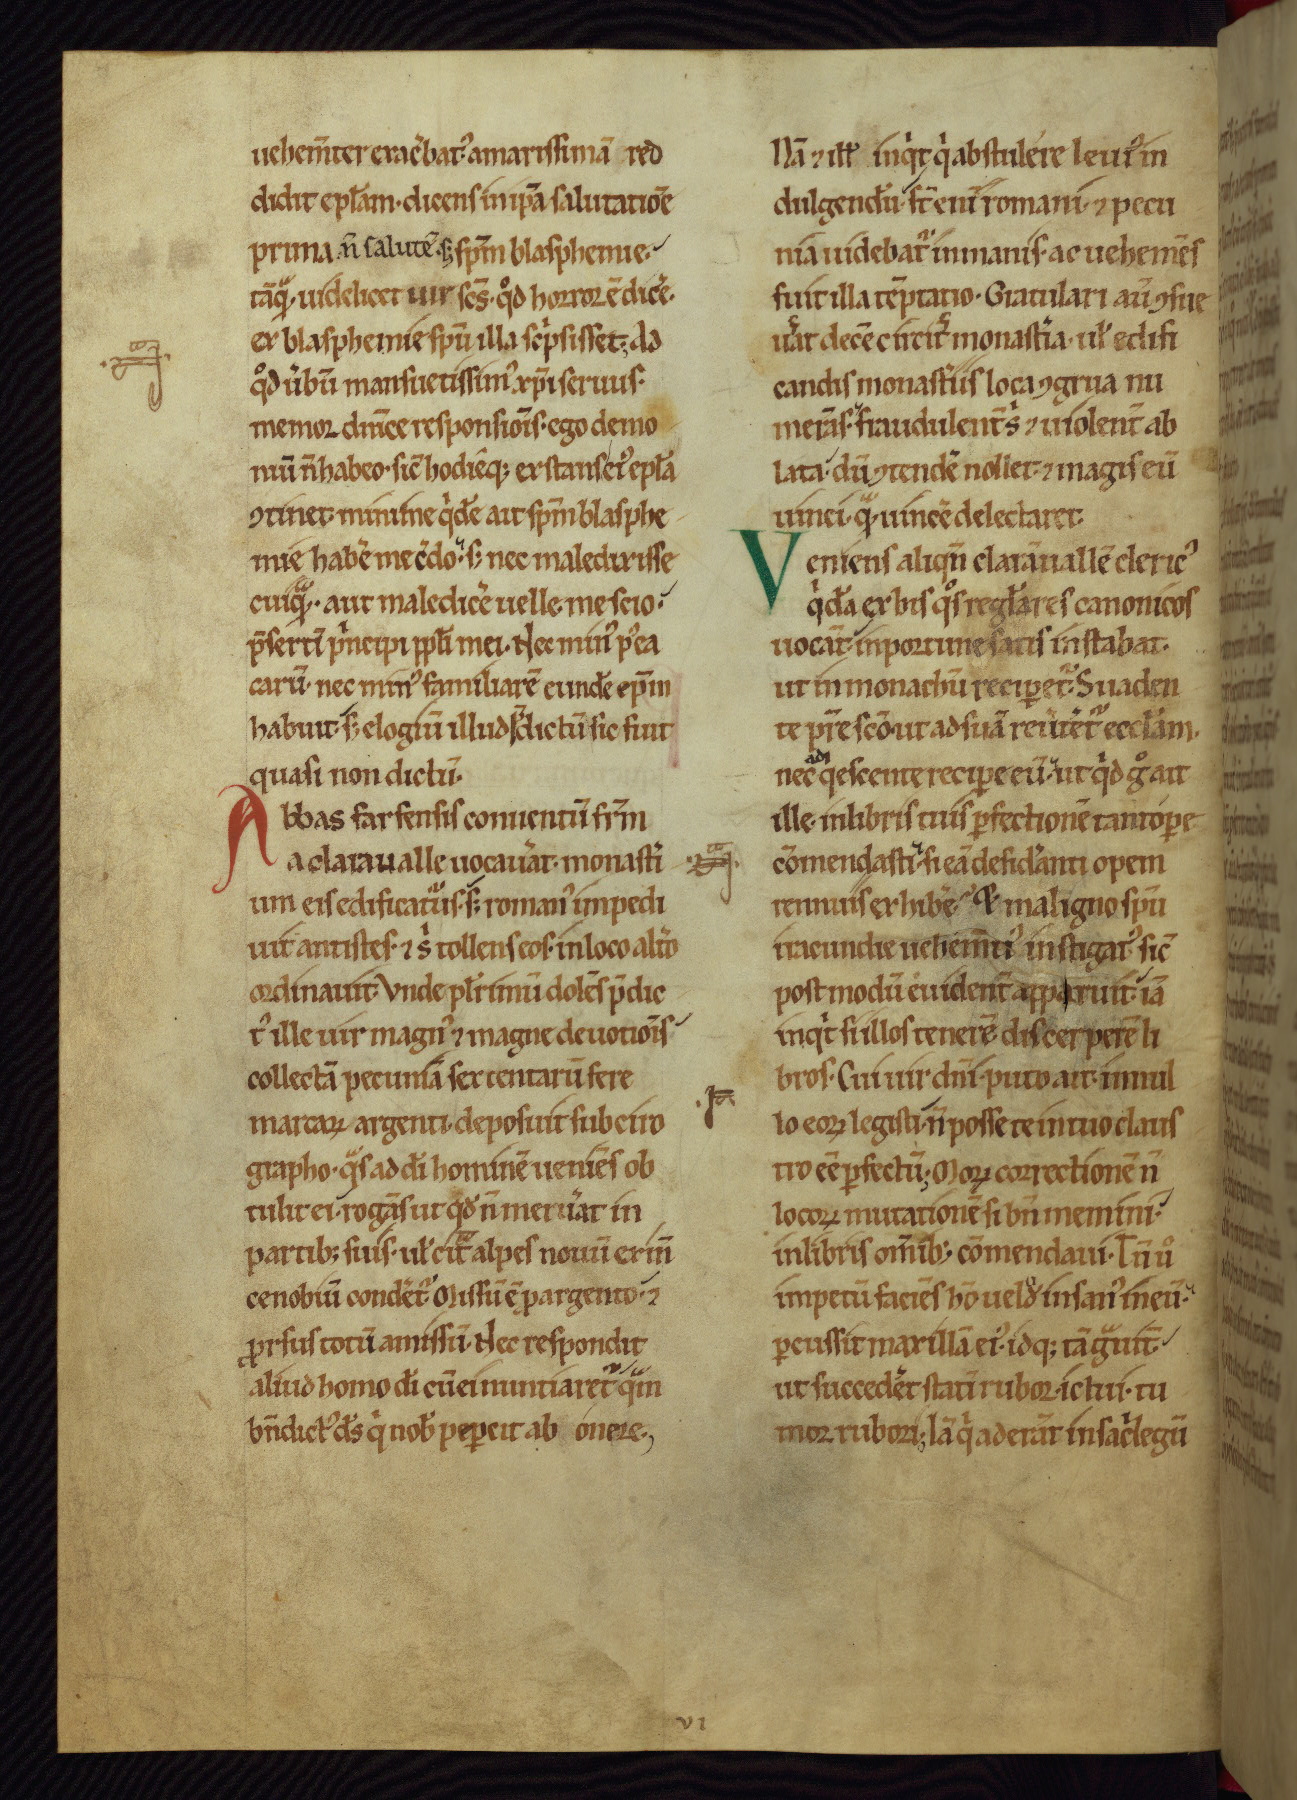 uehem̄ter exac̄bat᷒ amarissimā red
didit ep̄lam· dicens in ip̄a salutatiōe
prima n̄ salutē· s; sp̄m blasphemie·
tāqͣ· uidelicet uir sc̄s· qͦd horror ē dic̄e·
ex blasphemie sp̄u illa sc̍psisset; Ad
qͦd ūbū mansuetissim᷒ xp̄i seruus·
memor dn̄ice responsiōis· ego demo
niū n̄ habeo· sic̄ hodieq; exstans ei᷒ ep̄la
ꝯtinet· minime q̍de̅ ait sp̄m blasphe
mie hab̄e me c̄do· s; nec maledixisse
cuiqͣ· aut maledic̄e uelle me scio·
p̄serti̅ p̍ncipi pp̄li mei· Nec min᷒ p᷒ ea
carū· nec min᷒ familiarē eunde̅ ep̄m
habuit· s; elogiū illud s̄dictū sic fuit
quasi non dictū·
Abbas farfensis conuentū fr̄m
a claraualle uocau̅at· monast̍i
um eis edificatur᷒us· s; roman᷒ impedi
uit antistes· ⁊ s̍ tollens eos· in loco alt̍o
ordinauit· Vnde pl̄rimū dolēs p̄dic
t᷒ ille uir magn᷒ ⁊ magne deuotiōis
collectā pecuniā sexcentarū fere
marcaꝝ argenti· deposuit sub ciro
grapho· qͣs ad di̅ hominē ueniēs ob
tulit ei· rogās ut qͦd n̄ meru̅at in
partib; suis· ul̄ citͣ alpes nouū exin̄
cenobiū condēt᷒· Missū ē p argento· ⁊
ꝓrsus totū amissū· Nec respondit
aliud homo di̅ cū ei nuntiaret᷒ qͣm
bn̄dict᷒ ds̄ q̍ nob̄ pep̲cit ab onere·
Nā ⁊ ill̄ inq̍t q̍ abstulere leui᷒ in
dulgendū· st̄ eni̅ romani· ⁊ pecu
nia uidebat᷒ inmanis· ac uehemēs
fuit illa tēptatio· Gratulari au̅ ꝯsue
u̅at decē circit᷒ monast̍ia· ul̄ edifi
candis monast̍iis loca ꝯgrua nu
merās· fraudulent̄ s̍ ⁊ uiolent̄ ab
lata· dū ꝯtende̅ nollet· ⁊ magis eū
uinci· qͣ· uince̅ delectaret·
Veniens aliqn̄ claāuallē cleric᷒
q̍dā ex his qͦs reglares canonicos
uocāt· inportune satis instabat·
ut in monachū recip̲et᷒· Suaden
te pr̄e scō· ut ad suā reu̅tet᷒ ecclam·
nec adq̍escente recip̲e eū· ut q̍d gͦ ait
ille· in libris tuis p̲fectionē tantop̲e
cōmendasti· si eā desid̄anti opem
tennuis exhibe̅᷒ Et maligno sp̄u
iracundie uehem̄ti᷒ instigat᷒· sic̄
postmodū euident̄ apparuit· iā
inq̍t si illos tenere̅ discerpere̅ li
bros· Cui uir dn̄i· puto ait· in nul
lo eoꝝ legisti· n̄ posse te in tuo claus
tro ee̅ p̲fectū; Moꝝ correctionē n̄
locoꝝ mutationē si bn̄ memini·
in libris om̄ib; cōmendaui· Tn̄ ūͦ
impetū faciēs hō uelud̄ insan᷒ in eū·
p̲cussit maxillā ei᷒· idq; tā gͣuit̄·
ut succede̅t stati̅ rubor ictui· tu
mor rubori; Iā q̍ aderāt in sac̍legū
VI